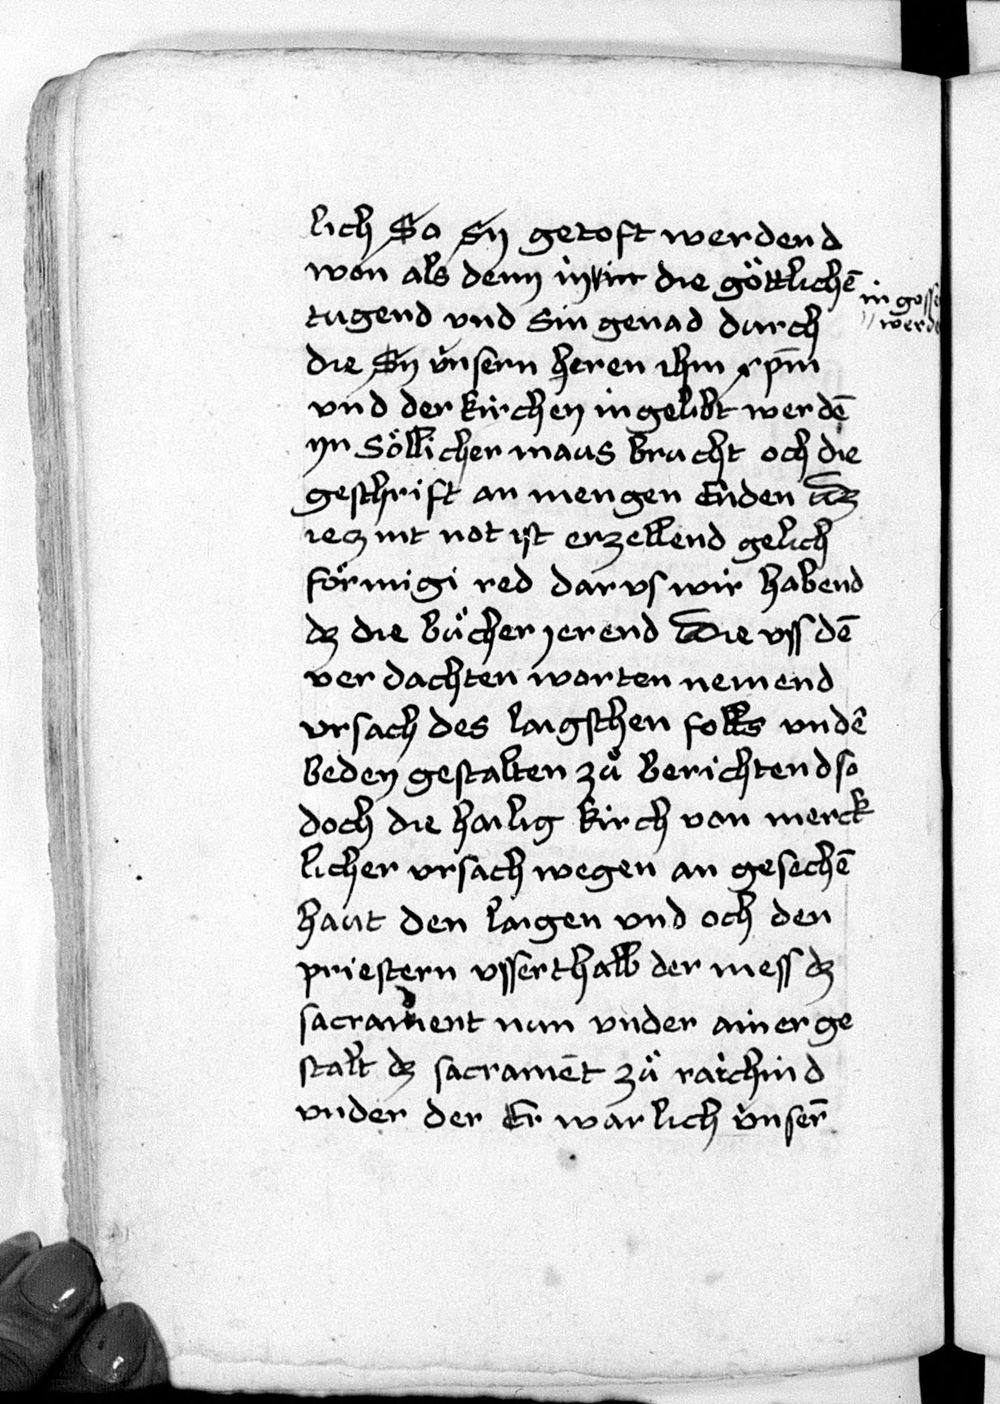 lich So Sy getoft werdend
won als denn in die göttlichē
in gosse
werde
tugend vnd Sin genad durch
die Sy ünsern heren ihm xp̄m
vnd der kirchen in gelibt werdē
yn Söllicher maus brucht och die
geschrift an mengen Enden
iecz nit not ist erzellend gelich
förmigi red dar vs wir habend
dz die bücher jerend die vss dē
ver dachten worten nemend
vrsach des laigschen folks vndē
beden gestalten zů berichtend so
doch die hailig kirch von merck
licher vrsach wegen an gesechē
haut den laigen vnd och den
priestern vsserthalb der mess dz
sacrament nun vnder ainer ge
stalt dz sacramēt zů raichind
vnder der Er warlich ünser̄